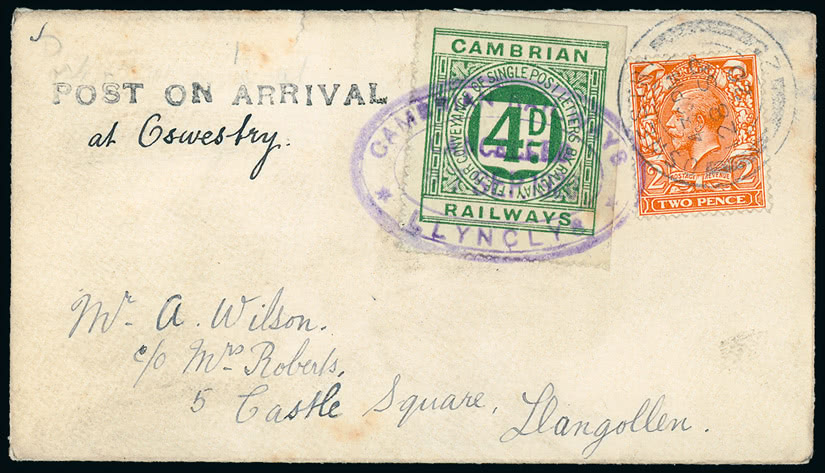 POST ON ARRIVAL
at Oswestry.
CAMBRIAN
FEE FOR CONVEYANCE OF SINGLE POST LETTERS BY RAILWAY
4D
RAILWAYS
LLYNCLYS
2 POSTAGE REVENUE 2
TWO PENCE
Mr. A. Wilson.
c/o Mrs Roberts,
5 Castle Square,
Llangollen.